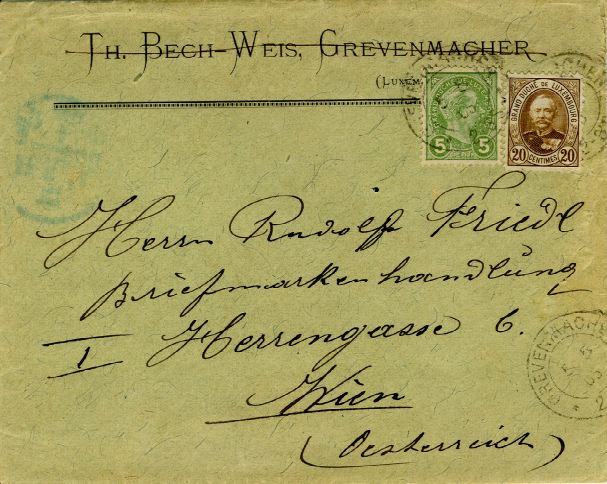 TH. BECH-WEIS, GREVENMACHER
(LUXEM
GRAND DUCHÉ DE LUXEMBOURG
5 5
20 CENTIMES 20
Herrn Rudolf Friedl
Briefmarkenhandlung
I Herrengasse 6.
Wien
(Oesterreich)
GREVENMACHE